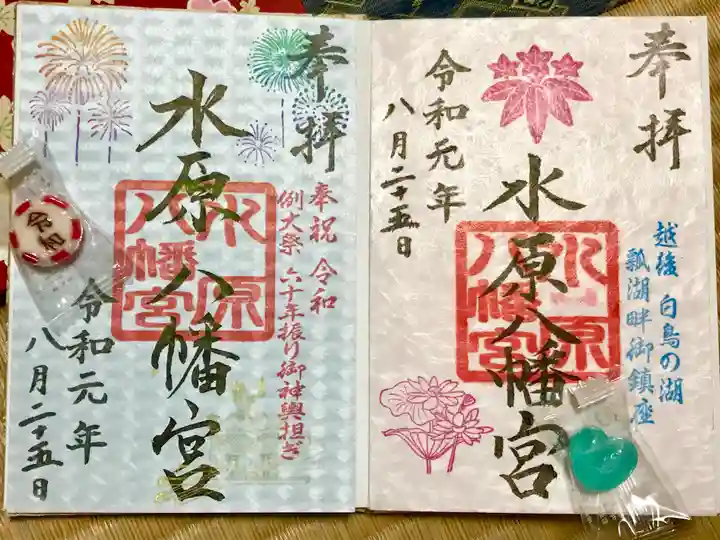 奉拝
越後 白鳥の湖
瓢湖畔御鎮座
水原八幡宮
水原
八幡宮
令和元年
八月二十五日
奉拝
奉祝 令和
例大祭 六十年振り御神輿担ぎ
水原八幡宮
水原
八幡宮
令和元年
八月二十五日
令和